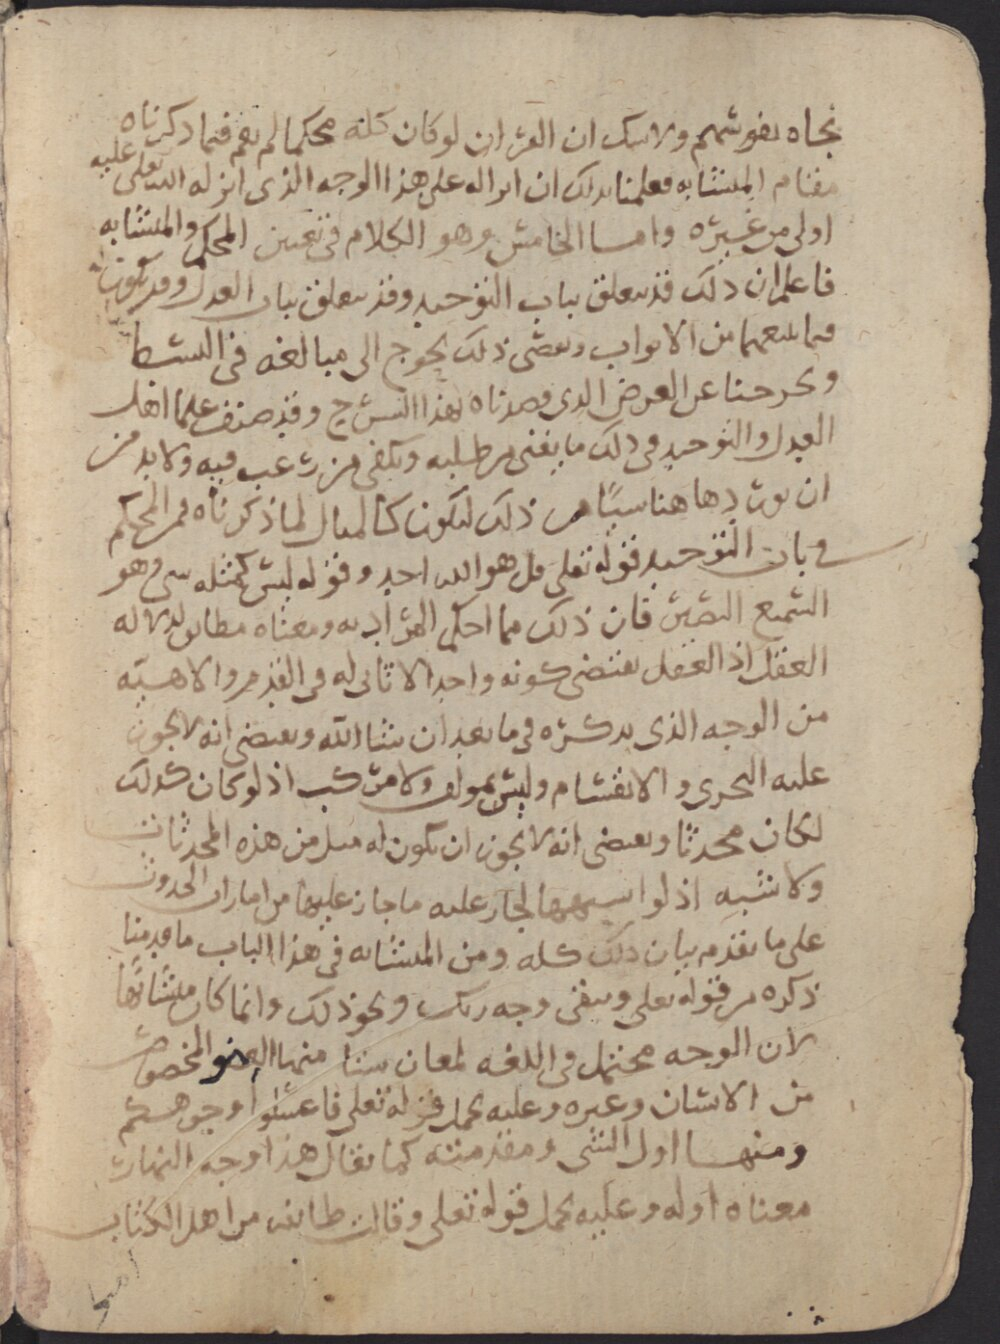 نجاه نفوسهم ولا شك ان القران لو كان كله محكما لم يقم فيما ذكرناه
مقام المتشابه فعلمنا بذلك ان انزاله على هذا الوجه الذى انزله الله تعلى عليه
اولى من غيره واما الخامس وهو الكلام فى تعيين المحكم والمتشابه
فاعلم ان ذلك قد يتعلق بباب التوحيد وقد يتعلق بباب العدل وقد يكون
فيما يتبعهما من الابواب وتقصى ذلك يحوج الى مبالغه فى البسط
ويخرجنا عن الغرض الذى قصدناه بهذا الشرح وقد صنف علما اهل
العدل والتوحيد فى ذلك ما يغنى من طلبه ويكفى من رغب فيه ولا بد من
ان نورد هاهنا شيًا من ذلك ليكون كالمثال لما ذكرناه فمن المحكم
فى باب التوحيد قوله تعلى قل هو الله احد وقوله ليس كمثله شى وهو
السميع البصير فان ذلك مما احكم المراد به ومعناه مطابق لدلاله
العقل اذ العقل يقتضى كونه واحدا لا ثانى له فى القدم والالاهيه
من الوجه الذى نذكره فى ما بعد ان شا الله ويقتضى انه لا يجوز
عليه التجزى والانقسام وليس بمولف ولا مركب اذ لو كان كذلك
لكان محدثا ويقتضى انه لا يجوز ان يكون له مثل من هذه المحدثات
ولا شبه اذ لو اشبهها لجاز عليه ما جاز عليها من امارات الحدوث
على ما تقدم بيان ذلك كله ومن المتشابه فى هذا الباب ما قدمنا
ذكره من قوله تعلى ويبقى وجه ربك ونحو ذلك وانما كان متشابهًا
لان الوجه محتمل فى اللغه لمعان ستا منها العضو المخصوص
من الانسان وغيره وعليه يحمل قوله تعلى فاغسلوا وجوهكم
ومنها اول الشى ومقدمته كما يقال هذا وجه النهار
معناه اوله وعليه يحمل قوله تعلى وقالت طايفه من اهل الكتاب
امنوا